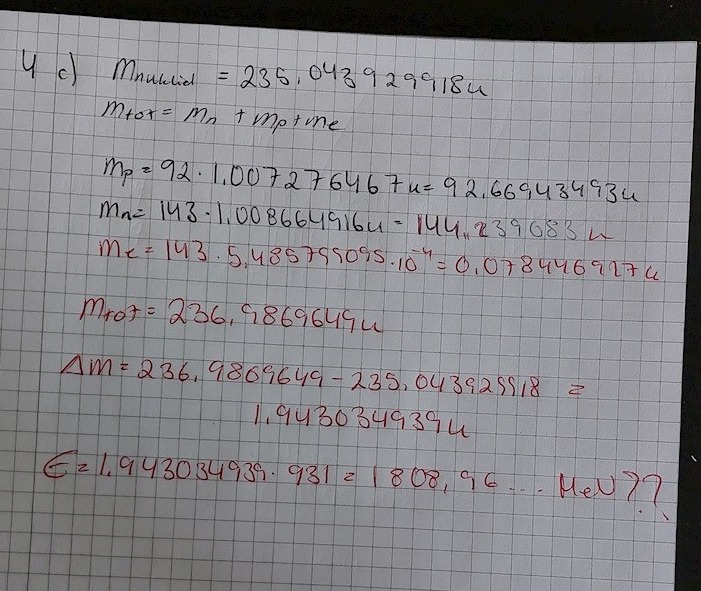 4 c) Mnuklid = 235.043929918u
mtot = mn + mp+me
mp = 92 · 1.007276467u = 92.66943493u
mn = 143 · 1.008664916u = 144.239083 u
me = 143 · 5.485799095 · 10⁻⁴ = 0.078446927u
mtot = 236.9869649u
Δm = 236.9869649 - 235.043929918 =
1.943034939u
E = 1.943034939 · 931 = 1808,96 ... MeV??